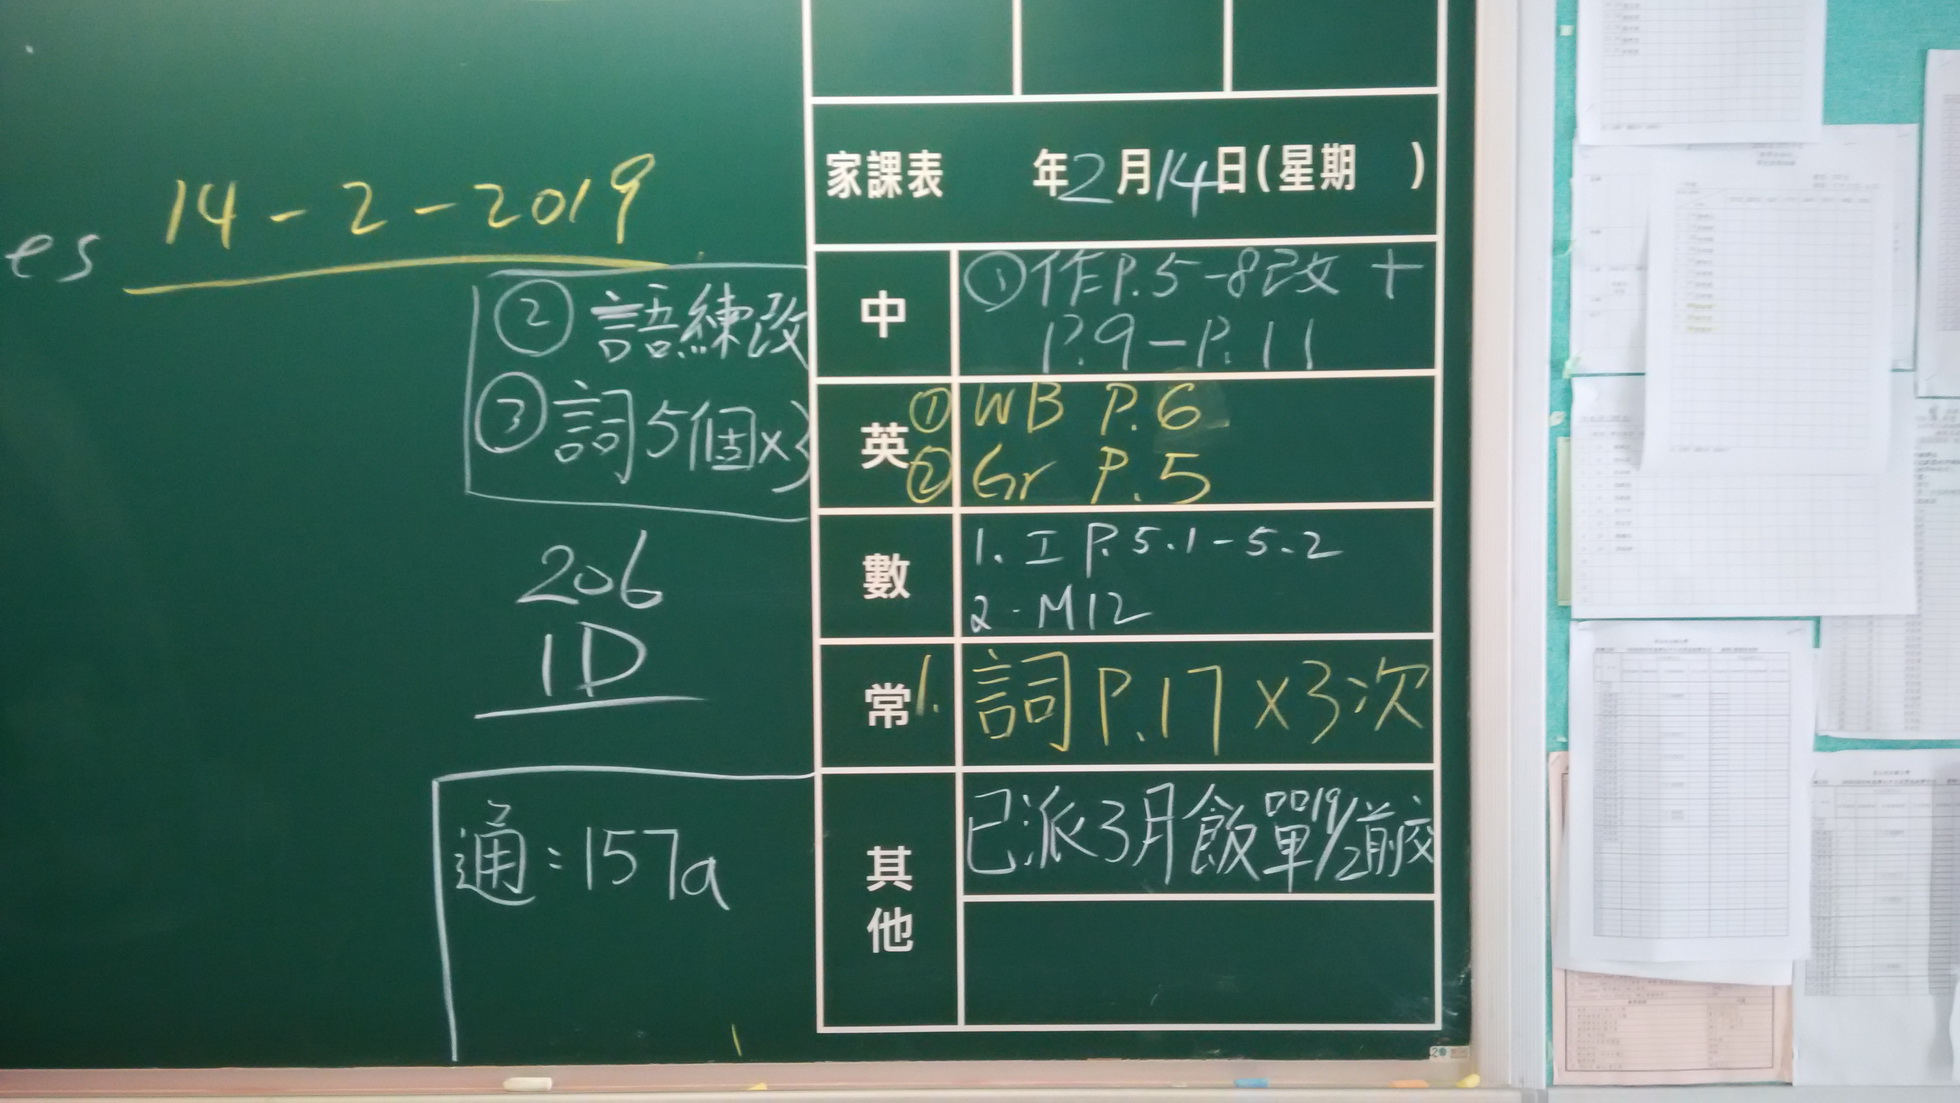 es 14-2-2019
② 語練改
③ 詞5個x3
206
1D
通:157a
家課表 年2月14日(星期 )
中 ①作P.5-8改+
P.9-P.11
英 ① WB P.6
② Gr P.5
數 1. I P.5.1-5.2
2. M12
常 1. 詞P.17x3次
其他 已派3月飯單19/2前交